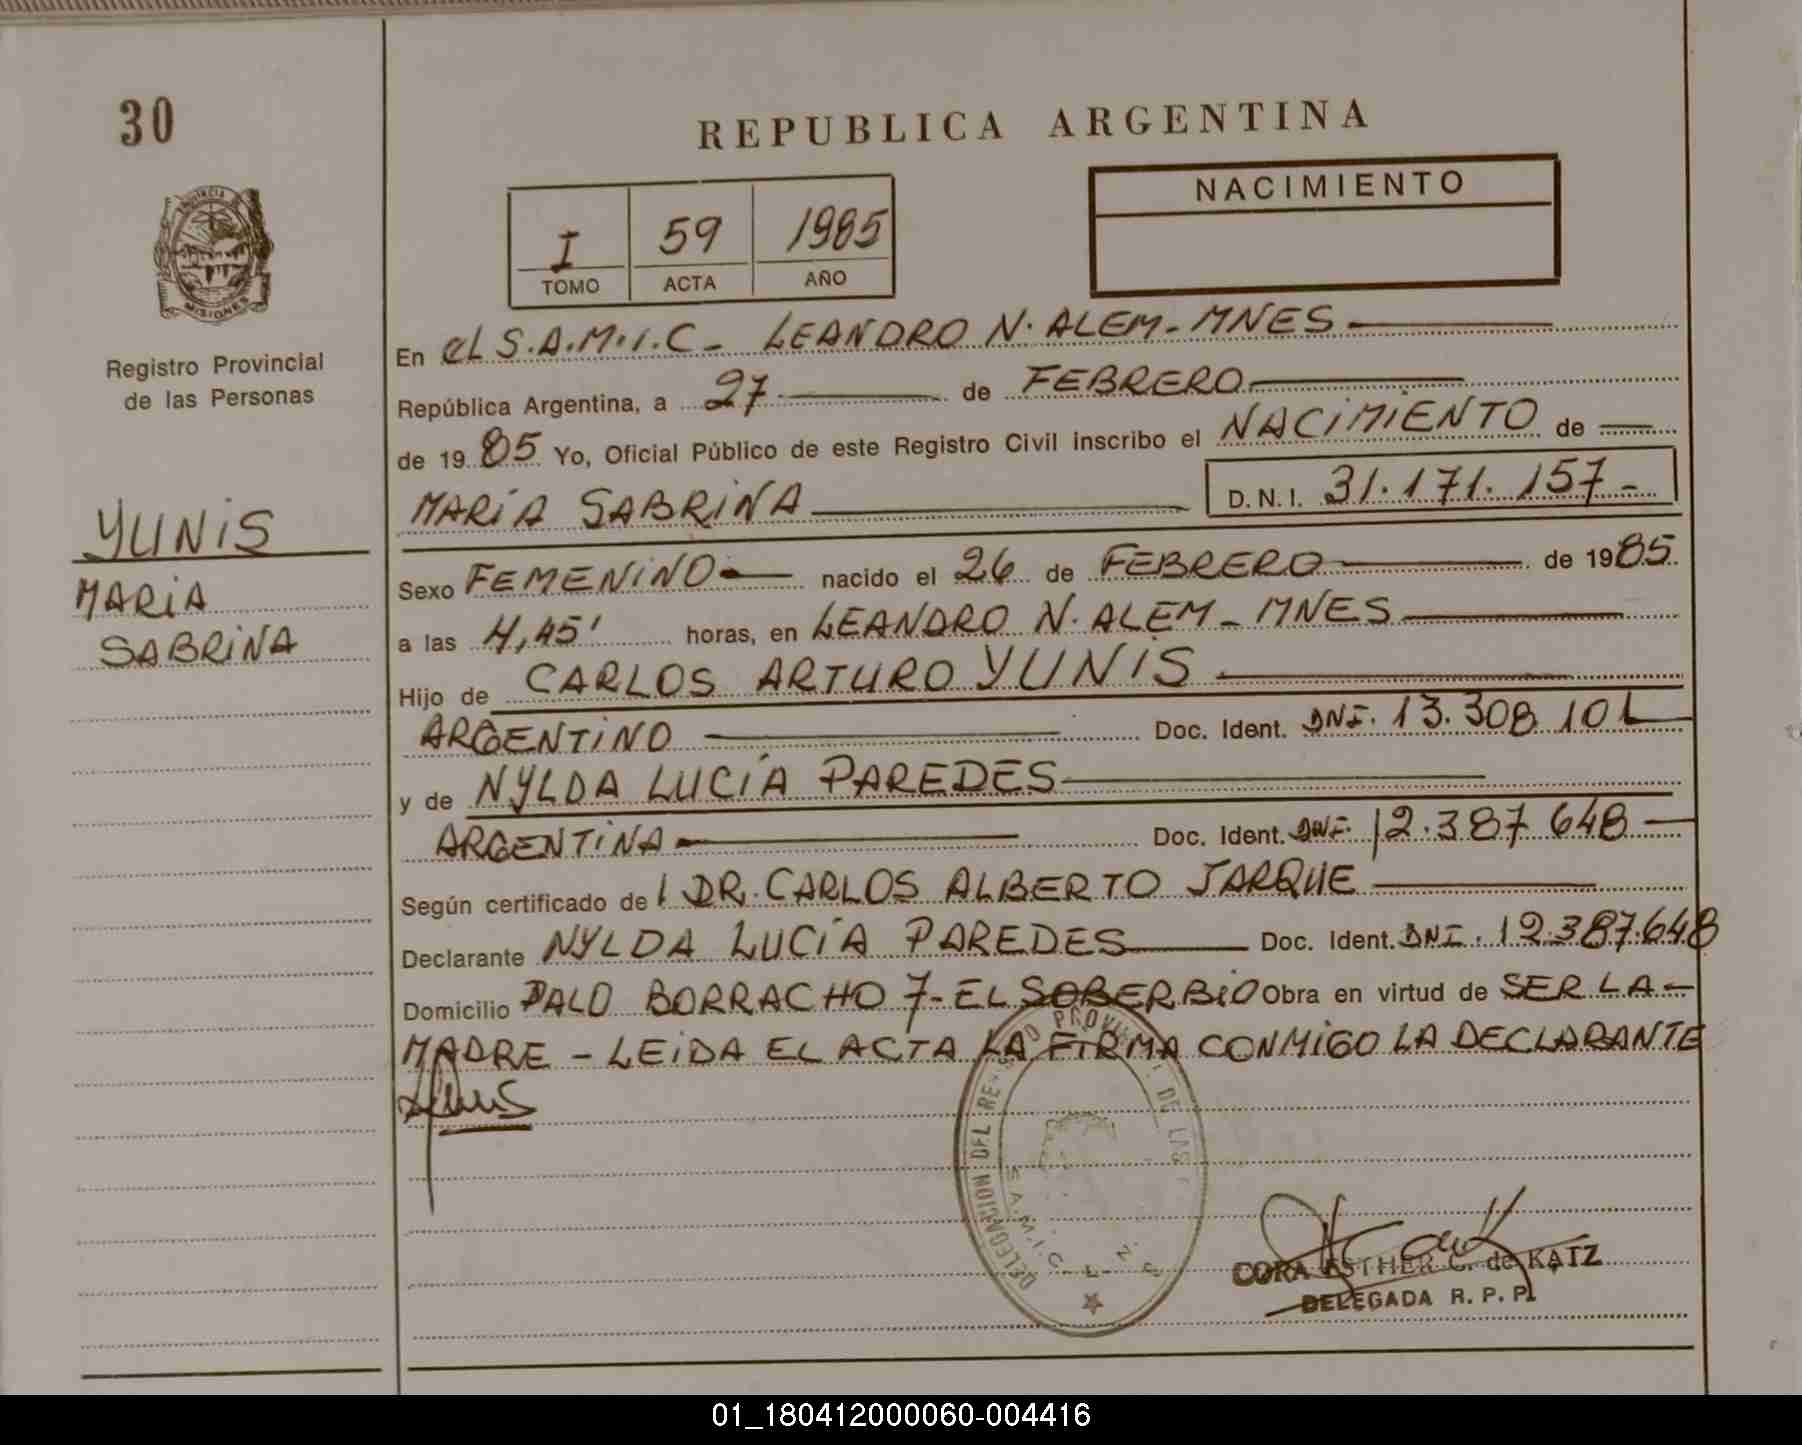 30
REPUBLICA ARGENTINA
NACIMIENTO
I 59 1985
TOMO ACTA AÑO
PROVINCIA DE
MISIONES
Registro Provincial
de las Personas
YUNIS
MARIA
SABRINA
En el S.A.M.I.C- LEANDRO N. ALEM-MNES
República Argentina, a 27 de FEBRERO
de 1985 Yo, Oficial Público de este Registro Civil inscribo el NACIMIENTO de
MARIA SABRINA D.N.I. 31.171.157-
Sexo FEMENINO nacido el 26 de FEBRERO de 1985
a las 4,45' horas, en LEANDRO N. ALEM-MNES
Hijo de CARLOS ARTURO YUNIS
ARGENTINO Doc. Ident. DNI. 13.308.101
y de NYLDA LUCÍA PAREDES
ARGENTINA Doc. Ident. DNI. 12.387.648
Según certificado del DR. CARLOS ALBERTO JARQUE
Declarante NYLDA LUCÍA PAREDES Doc. Ident. DNI. 12.387.648
Domicilio PALO BORRACHO 7-EL SOBERBIO Obra en virtud de SER LA-
MADRE - LEIDA EL ACTA LA FIRMA CONMIGO LA DECLARANTE
DELEGACION DEL REGISTRO PROVINCIAL DE LAS
S.A.M.I.C.
CORA ESTHER C. de KATZ
DELEGADA R.P.P.
01_180412000060-004416